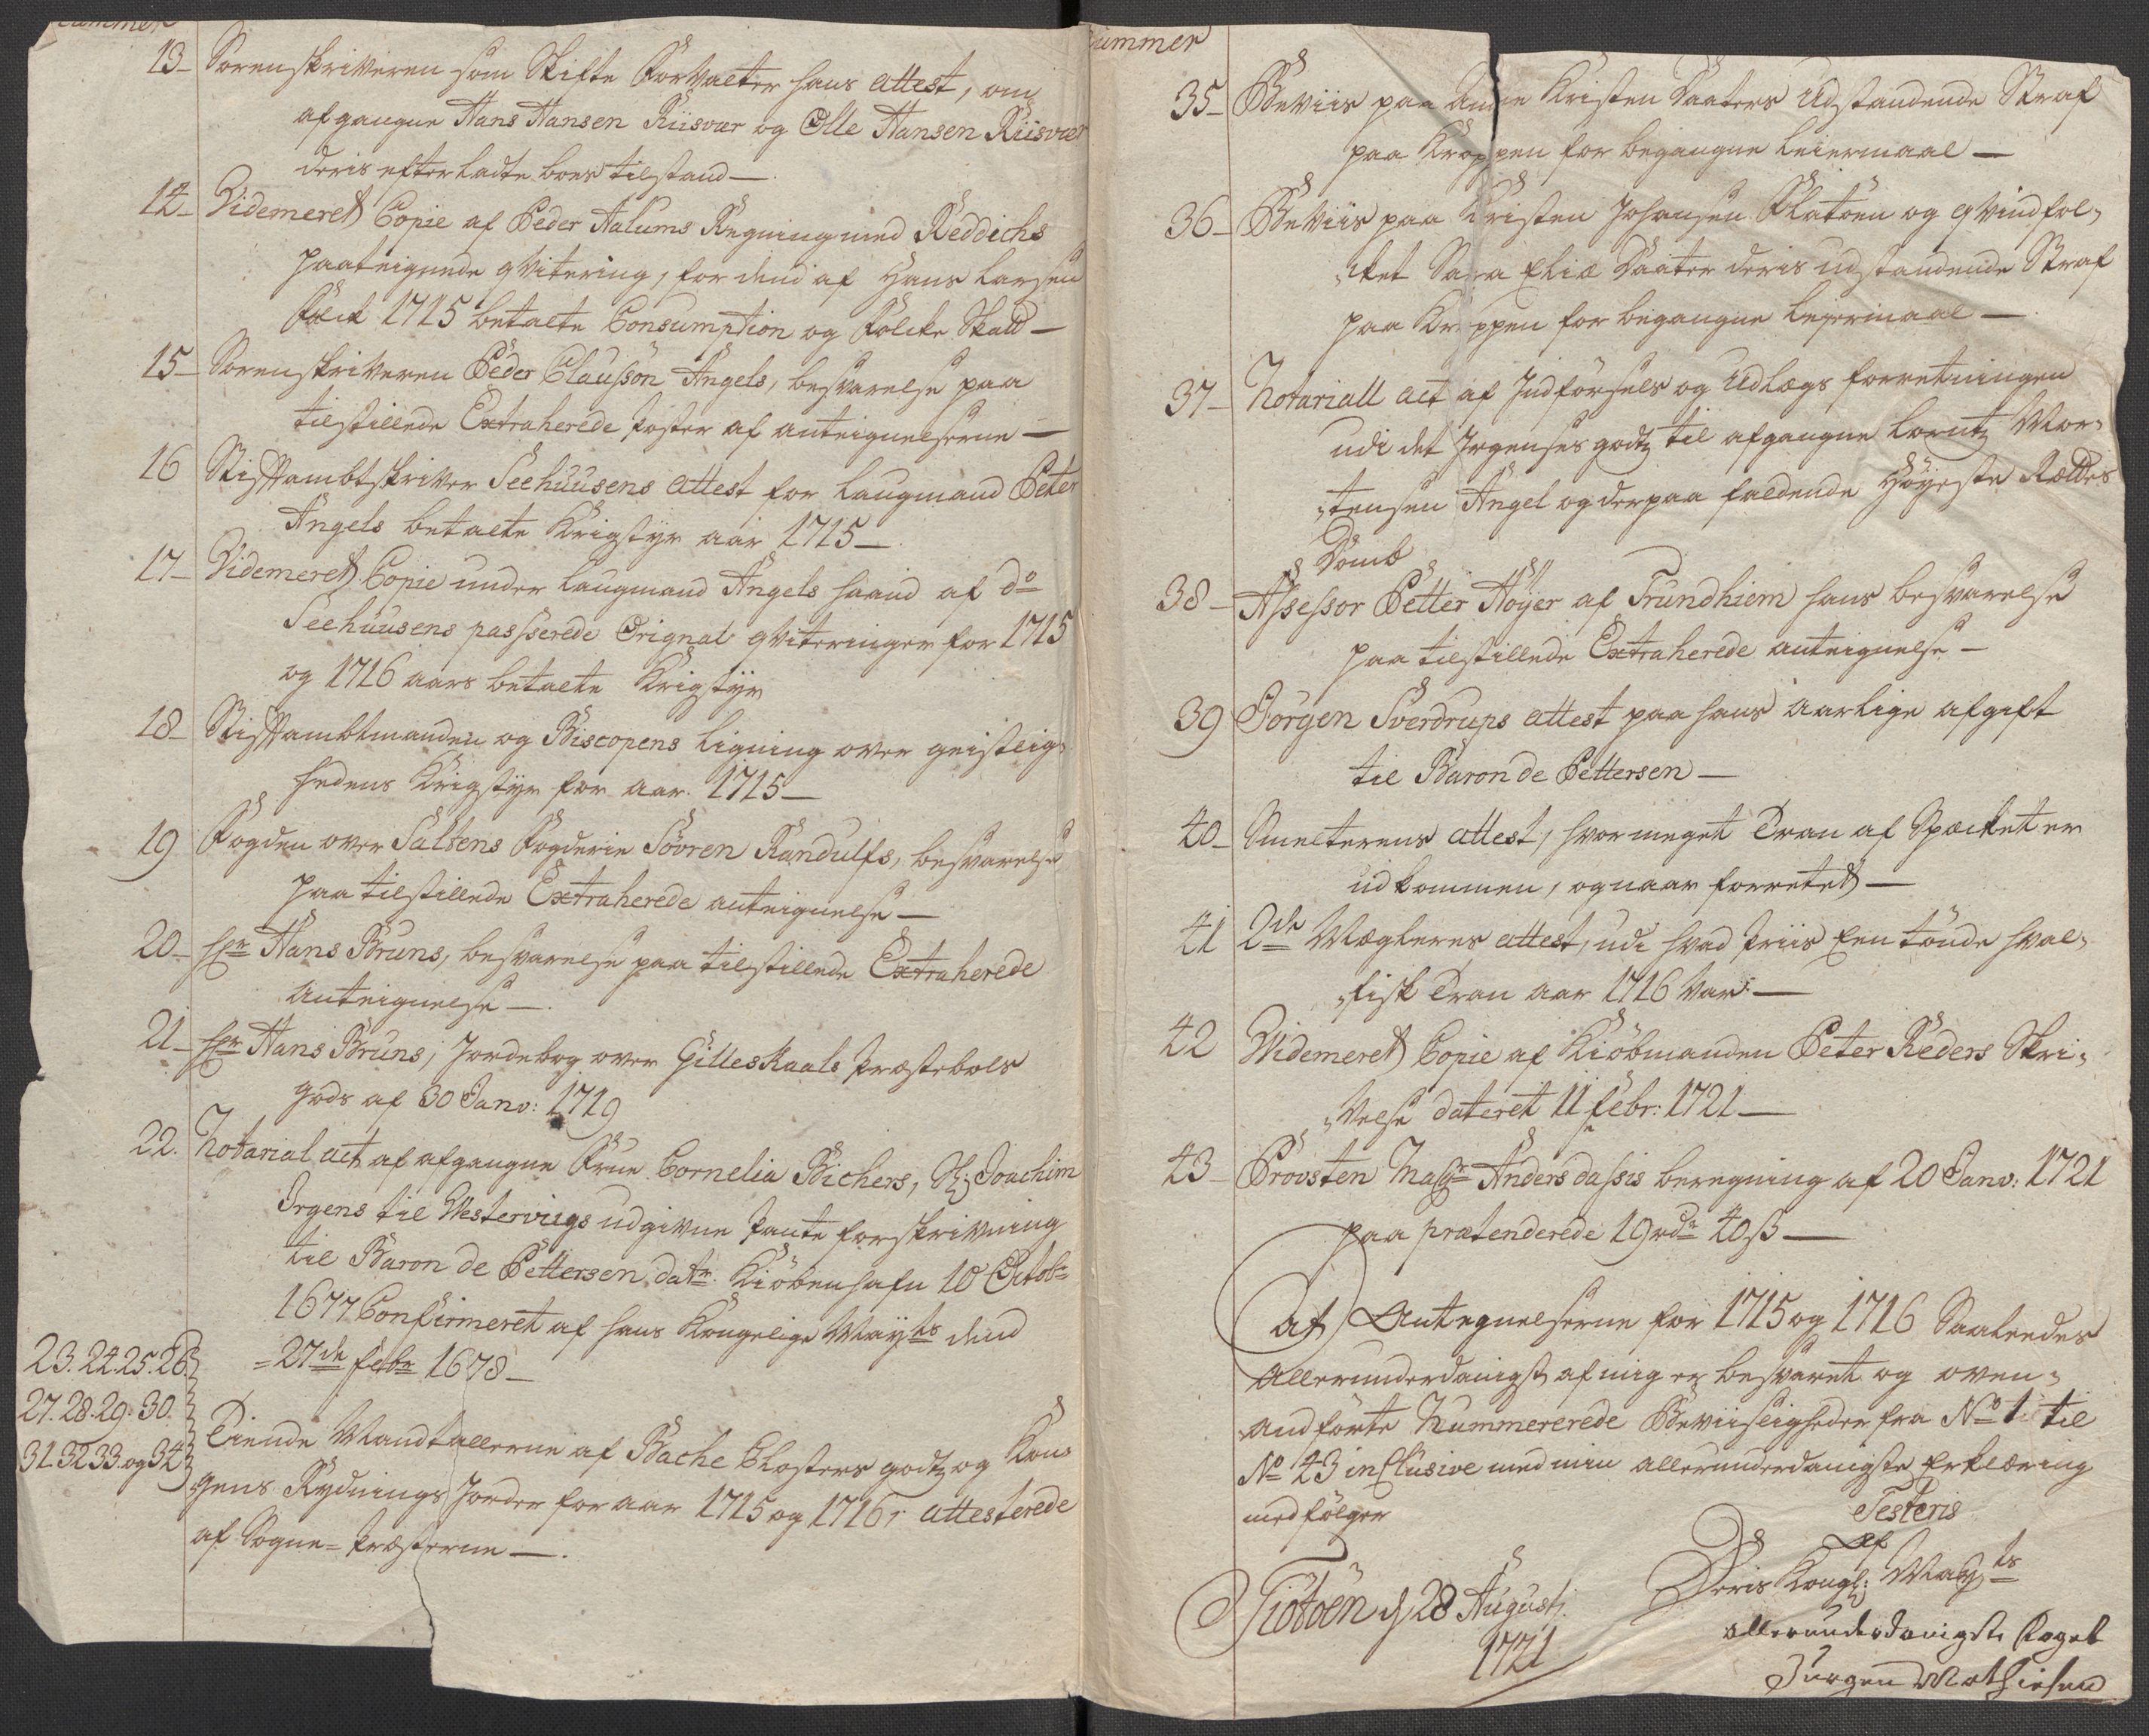 Nummer
13_ Sorenskriveren som Skifte Forvalter hans attest, om
afgangne Hans Hansen Riisvær og Olle Hansen Riisvær
deris efterladte boes tilstand_
14_ Videmeret Copie af Peder Aalums Regning med Reddichs
paateignede qvitering, for dend af Hans Larsen
Falck 1715 betalte Consumption og Folcke Skatt_
15_ Sorenskriveren Peder Clausson Angels, besvarelse paa
tilstillede Extraherede poster af anteignelserne_
16 Stiftambtskriver Seehuusens attest for laugmand Peter
Angels betalte Krigstyr aar 1715_
17_ Videmeret Copie under laugmand Angels haand af do
Seehuusens passerede Orignal qviteringer for 1715
og 1716 aars betalte Krigstyr
18_ Stiftambtmanden og Biscopens ligning over geistlig=
hedens Krigstyr for aar. 1715_
19 Fogden over Saltens Fogderie Sövren Randulfs, besvarelse
paa tilstillede Extraherede anteignelse_
20_ Hr Hans Bruns, besvarelse paa tilstillede Extraherede
Anteignelse_
21_ Hr Hans Bruns, Jordebog over Gilleskaals præstebols
gods af 30 Janv: 1719
22. Notarial act af afgangne Frue Cornelia Bichers, Sl: Joachim
Irgens til Westerviigs udgivne pante forskrivning
til Baron de Pettersen datr. Kiöbenhafn 10 Octobr
1677 Confirmeret af hans Kongelige Mayts dend
=27de febr 1678_
23. 24. 25. 26.
27. 28. 29. 30.
31. 32 33. og 34
Tiende Mandtallerne af Bache Closters godtz og Kon=
gens Rydnings Jorder for aar 1715 og 1716, attesterede
af Sogne=præsterne_.
Nummer
35_ Beviis paa Anne Kristen Daaters Udstandende Straf
paa Kroppen for begangne Leiermaal_
36_ Beviis paa Kristen Johansen Flatöen og qvindfol=
cket Sara Eliæ Daater deris udstandende Straf
paa Kroppen for begangne Leiermaal_
37_ Notariall act af Indförsels og Udlægs forretningen
udi det Irgenses godtz til afgangne Lorentz Mor=
tensen Angel og derpaa faldende Höyeste Rættes
Domb
38_ Assessor Petter Höyer af Trundhiem hans besvarelse
paa tilstillede Extraherede anteignelse_
39 Jörgen Sverdrups attest paa hans aarlige afgift
til Baron de Pettersen_
40_ Smelterens attest, hvor meget Tran af Specket er
udkommen, og naar forretet_
41 2de Mægleres attest, udi hvad priis Een tönde hval=
fisk Tran aar 1716 var_
42 Widemeret Copie af Kiöbmanden Peter Röders Skri=
velse dateret 11 febr: 1721_
43_ Provsten Magr Anders Dassis beregning af 20 Janv: 1721
paa prætenderede 19 rdr 40 ß_
At Antegnelserne for 1715 og 1716 Saaledes
Allerunderdanigst af mig er besvaret og oven=
andförte Nummererede Beviisligheder fra No 1 til
No 43 inclusive med min allerunderdanigste Erklæring
medfölger Testeris
Af
Deris Kongl: Mayts
Tiötöen d 28 Augusti
1721
allerunderdanigste Foget
Jürgen Mathiesen